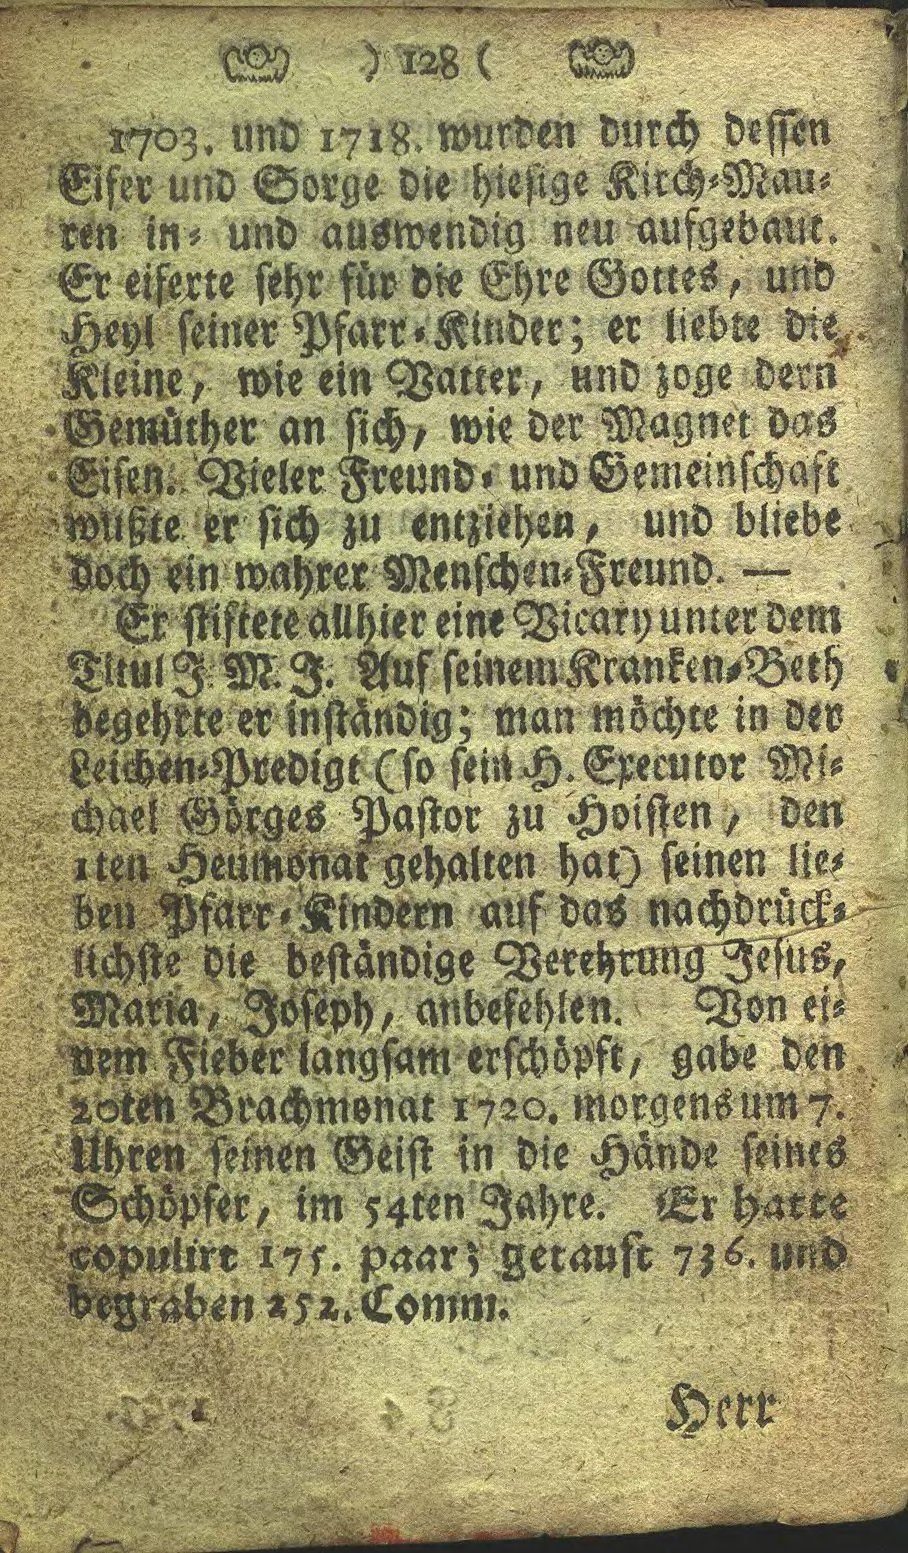 ) 128 (
1703. und 1718. wurden durch dessen
Eifer und Sorge die hiesige Kirch-Mau-
ren in- und auswendig neu aufgebaut.
Er eiferte sehr für die Ehre Gottes, und
Heyl seiner Pfarr-Kinder; er liebte die
Kleine, wie ein Vatter, und zoge dern
Gemüther an sich, wie der Magnet das
Eisen. Vieler Freund- und Gemeinschaft
wußte er sich zu entziehen, und bliebe
doch ein wahrer Menschen-Freund. —
Er stiftete allhier eine Vicary unter dem
Titul J. M. J. Auf seinem Kranken-Beth
begehrte er inständig; man möchte in der
Leichen-Predigt (so sein H. Executor Mi-
chael Görges Pastor zu Hoisten, den
1ten Heumonat gehalten hat) seinen lie-
ben Pfarr-Kindern auf das nachdrück-
lichste die beständige Verehrung Jesus,
Maria, Joseph, anbefehlen. Von ei-
nem Fieber langsam erschöpft, gabe den
20ten Brachmonat 1720. morgens um 7.
Uhren seinen Geist in die Hände seines
Schöpfer, im 54ten Jahre. Er hatte
copulirt 175. paar; getauft 736. und
begraben 252. Comm.
Herr